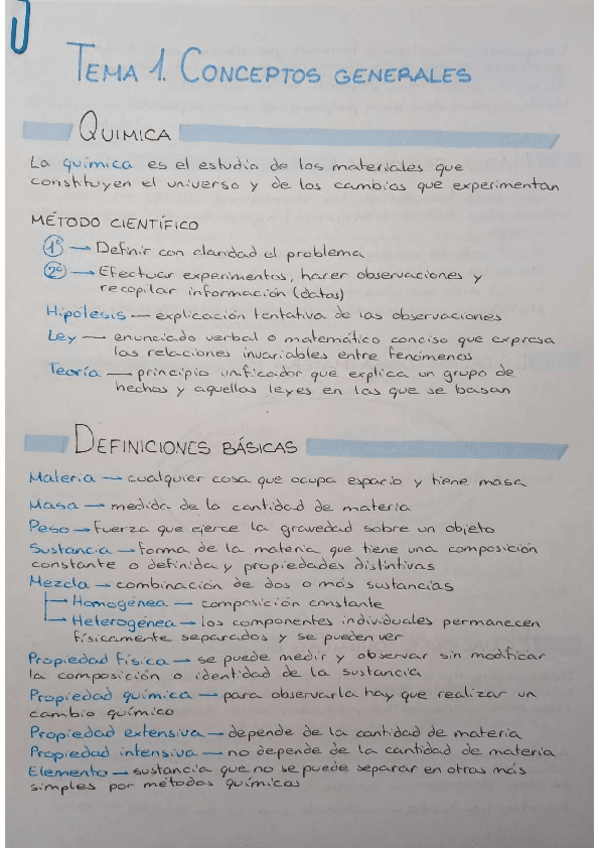 TEMA 1. CONCEPTOS GENERALES
QUIMICA
La química es el estudio de los materiales que
constituyen el universo y de los cambios que experimentan
MÉTODO CIENTÍFICO
1º → Definir con claridad el problema
2º → Efectuar experimentos, hacer observaciones y
recopilar información (datos)
Hipótesis — explicación tentativa de las observaciones
Ley — enunciado verbal o matemático conciso que expresa
las relaciones invariables entre fenómenos
Teoría — principio unificador que explica un grupo de
hechos y aquellas leyes en las que se basan
DEFINICIONES BÁSICAS
Materia → cualquier cosa que ocupa espacio y tiene masa
Masa → medida de la cantidad de materia
Peso → fuerza que ejerce la gravedad sobre un objeto
Sustancia → forma de la materia que tiene una composición
constante o definida y propiedades distintivas
Mezcla → combinación de dos o más sustancias
→ Homogénea → composición constante
→ Heterogénea → los componentes individuales permanecen
físicamente separados y se pueden ver
Propiedad física → se puede medir y observar sin modificar
la composición o identidad de la sustancia
Propiedad química → para observarla hay que realizar un
cambio químico
Propiedad extensiva → depende de la cantidad de materia
Propiedad intensiva → no depende de la cantidad de materia
Elemento → sustancia que no se puede separar en otras más
simples por métodos químicos